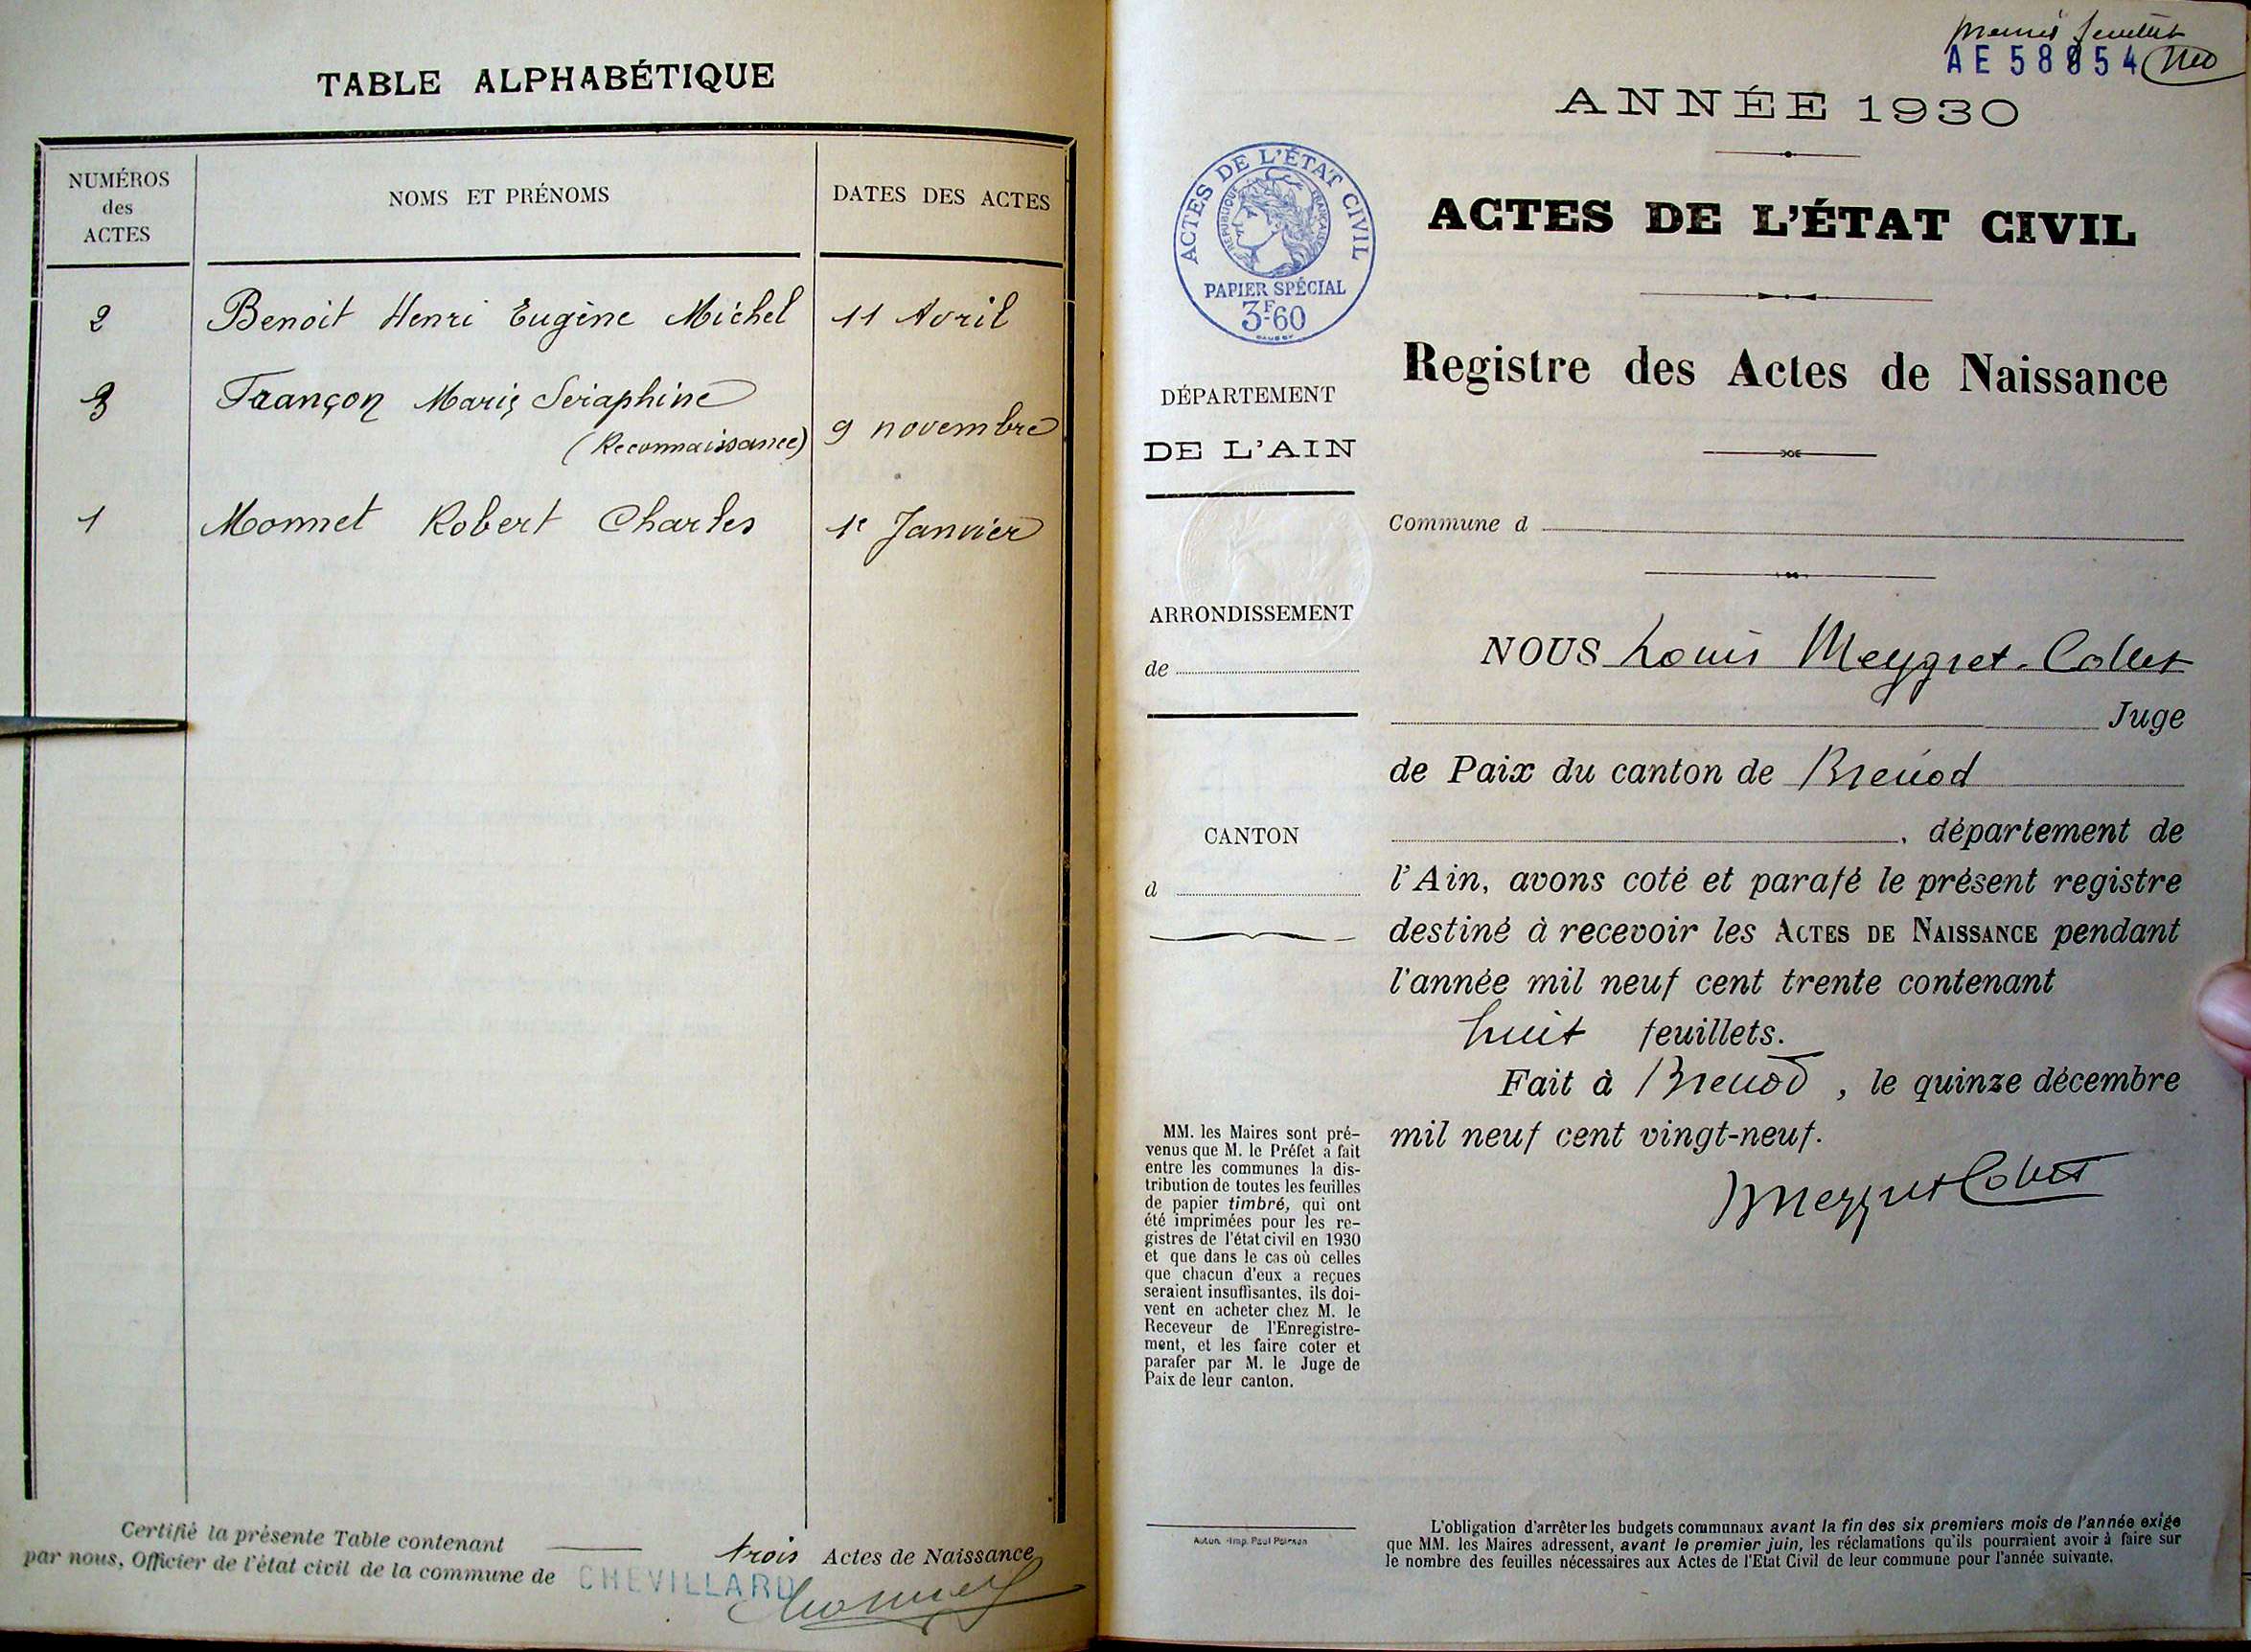 TABLE ALPHABÉTIQUE
NUMÉROS
des
ACTES
NOMS ET PRÉNOMS
DATES DES ACTES
2 Benoit Henri Eugène Michel 11 Avril
3 Françon Marie Seraphine
(Reconnaissance) 9 novembre
1 Monnet Robert Charles 1e Janvier
Certifié la présente Table contenant trois Actes de Naissance
par nous, Officier de l'état civil de la commune de CHEVILLARD
premier feuillet
AE 58854
ANNÉE 1930
ACTES DE L'ÉTAT CIVIL
RÉPUBLIQUE FRANÇAISE
PAPIER SPÉCIAL
3F60
ACTES DE L'ÉTAT CIVIL
Registre des Actes de Naissance
DÉPARTEMENT
DE L'AIN
Commune d
ARRONDISSEMENT
de
CANTON
d
NOUS Louis Meygret-Collet
Juge
de Paix du canton de Brenod
, département de
l'Ain, avons coté et parafé le présent registre
destiné à recevoir les ACTES DE NAISSANCE pendant
l'année mil neuf cent trente contenant
huit feuillets.
Fait à Brenod, le quinze décembre
mil neuf cent vingt-neuf.
MeygretCollet
MM. les Maires sont pré-
venus que M. le Préfet a fait
entre les communes la dis-
tribution de toutes les feuilles
de papier timbré, qui ont
été imprimées pour les re-
gistres de l'état civil en 1930
et que dans le cas où celles
que chacun d'eux a reçues
seraient insuffisantes, ils doi-
vent en acheter chez M. le
Receveur de l'Enregistre-
ment, et les faire coter et
parafer par M. le Juge de
Paix de leur canton.
L'obligation d'arrêter les budgets communaux avant la fin des six premiers mois de l'année exige
que MM. les Maires adressent, avant le premier juin, les réclamations qu'ils pourraient avoir à faire sur
le nombre des feuilles nécessaires aux Actes de l'Etat Civil de leur commune pour l'année suivante.